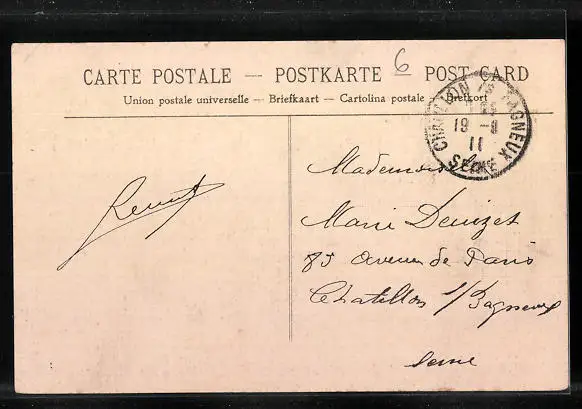 CARTE POSTALE — POSTKARTE — POST CARD
6
Union postale universelle — Briefkaart — Cartolina postale — Brefkort
CHATILLON BAGNEUX
19 - 8
11
SEINE
Mademoiselle
Marie Denizet
85 avenue de Paris
Chatillon s/Bagneux
Seine